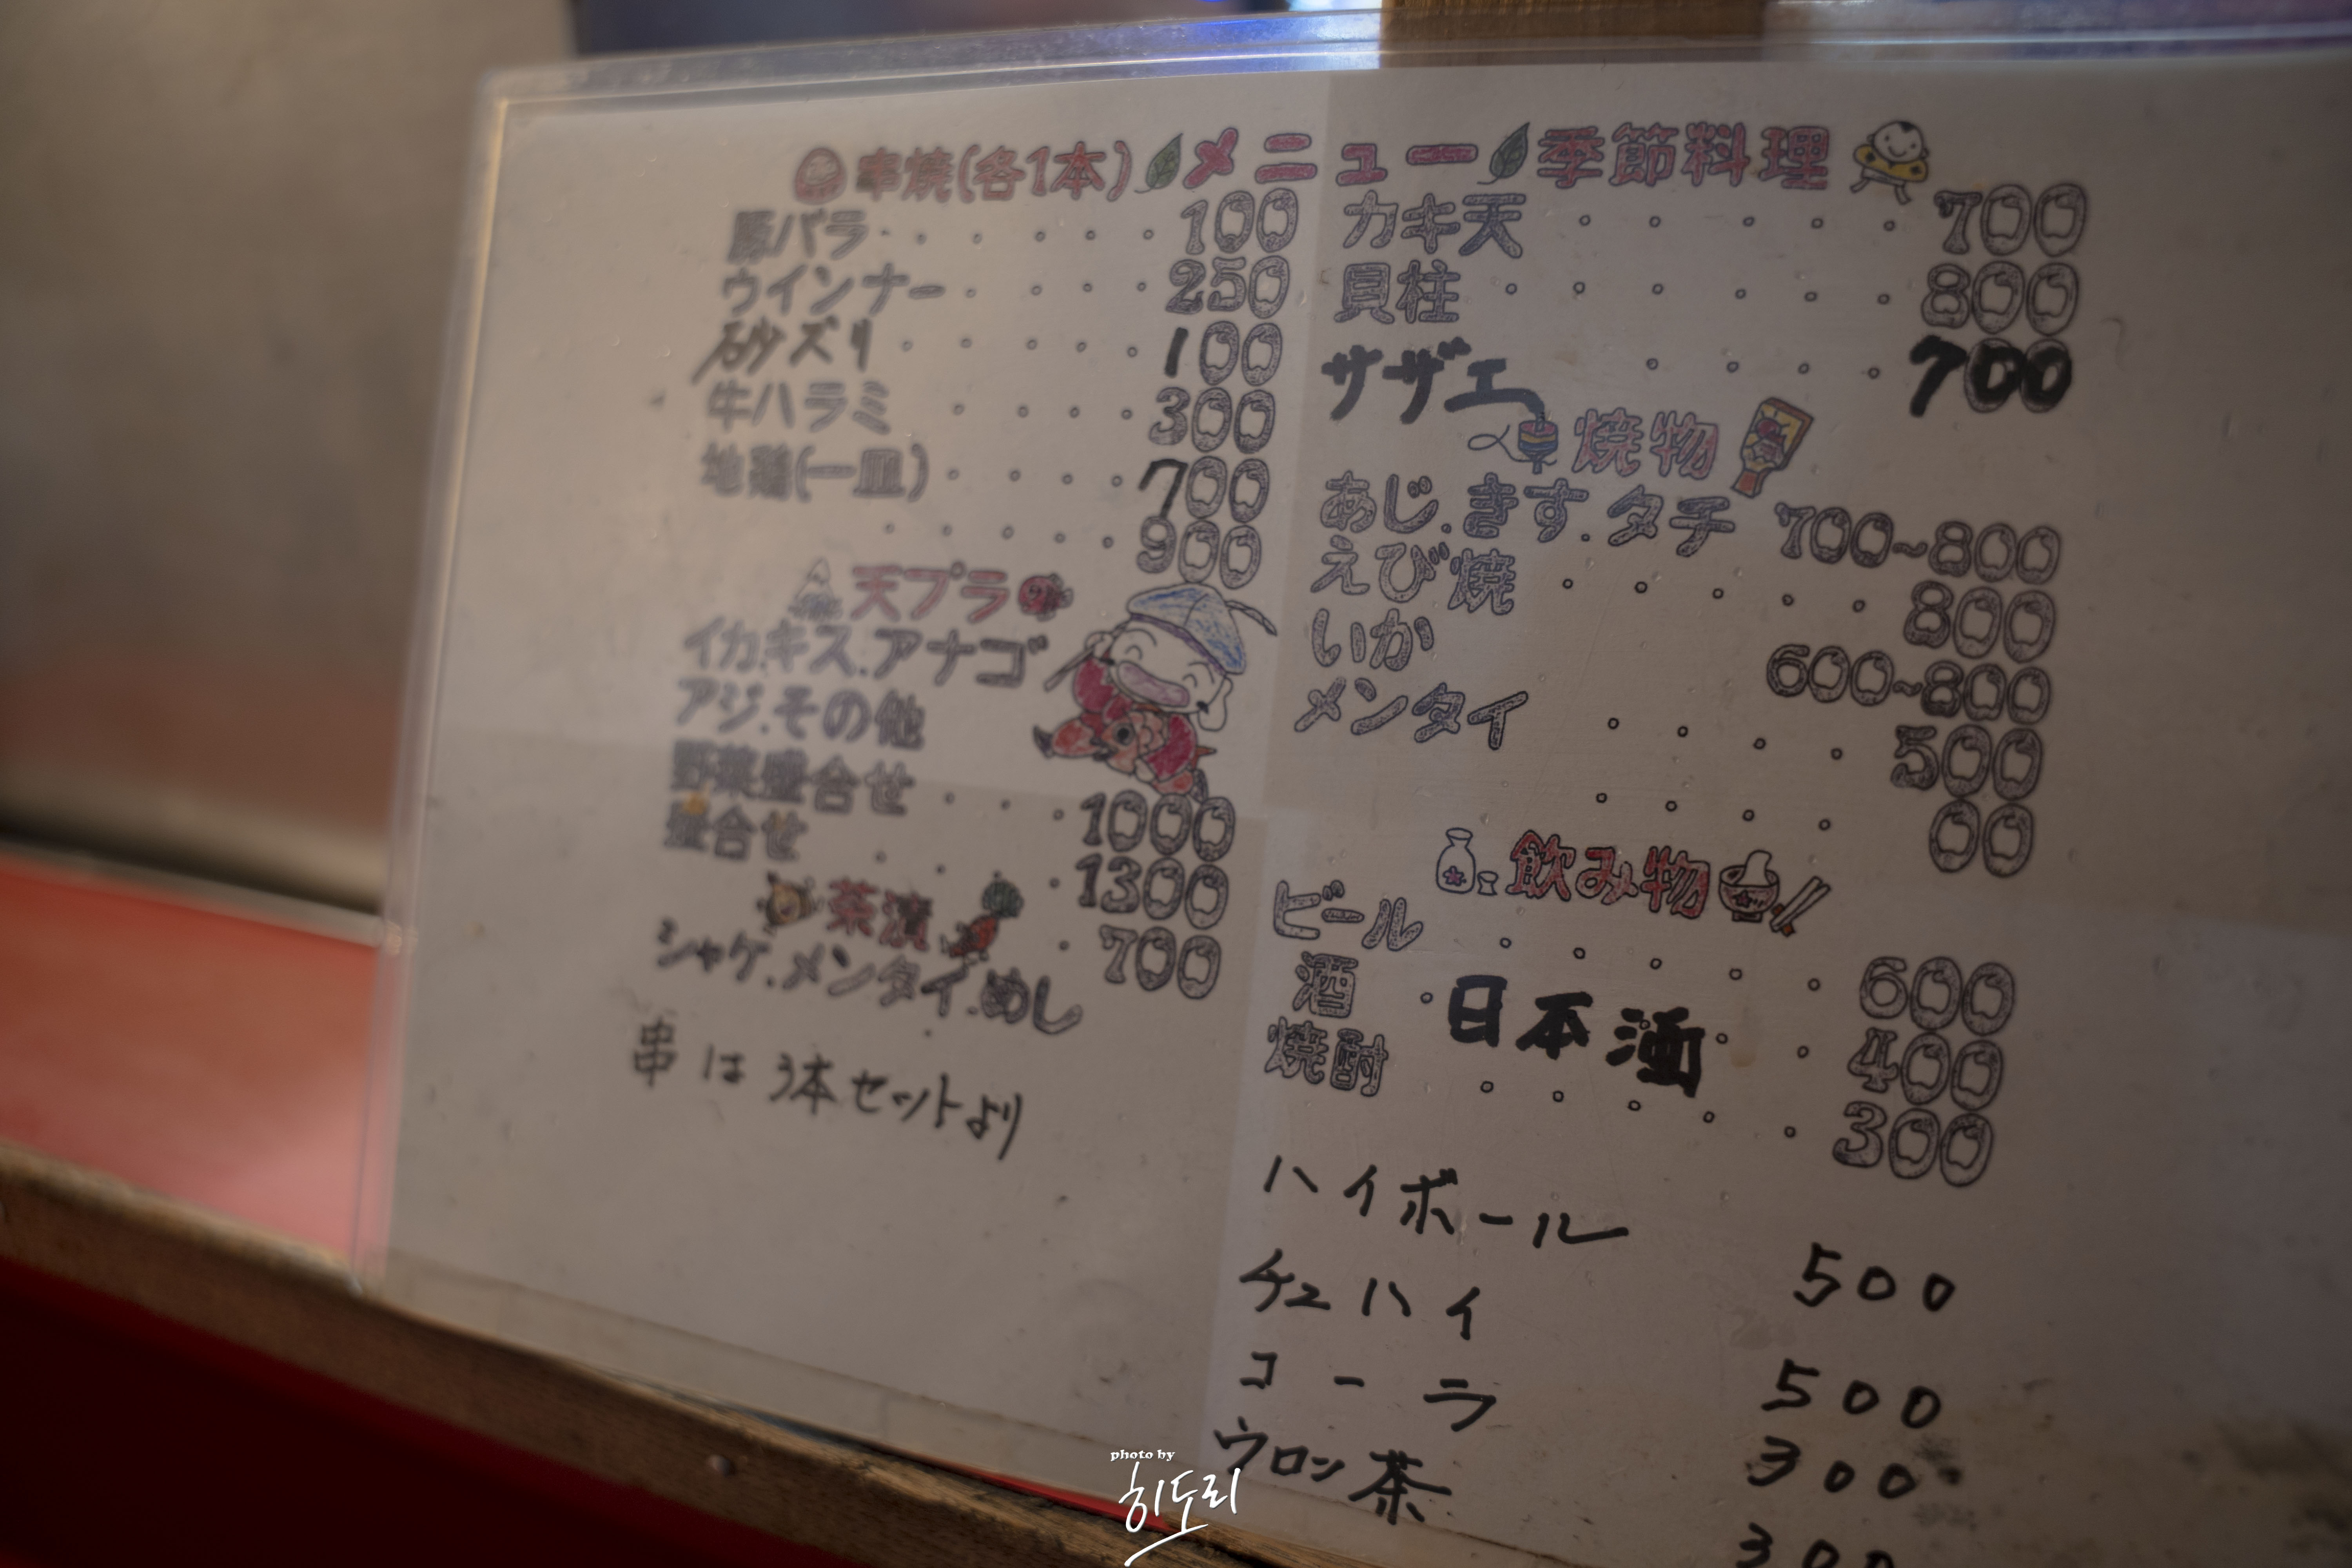 串焼(各1本) メニュー 季節料理
豚バラ 100
ウインナー 250
砂ズリ 100
牛ハラミ 300
地鶏(一皿) 700
900
天プラ
イカ.キス.アナゴ
アジ.その他
野菜盛合せ 1000
盛合せ 1300
茶漬 700
シャケ.メンタイ.めし
串は3本セットより
カキ天 700
貝柱 800
サザエ 700
焼物
あじ.きす.タチ 700~800
えび焼 800
いか 600~800
メンタイ 500
00
飲み物
ビール 600
酒 日本酒 400
焼酎 300
ハイボール 500
チュハイ 500
コーラ 300
ウロン茶 300
photo by
히도리